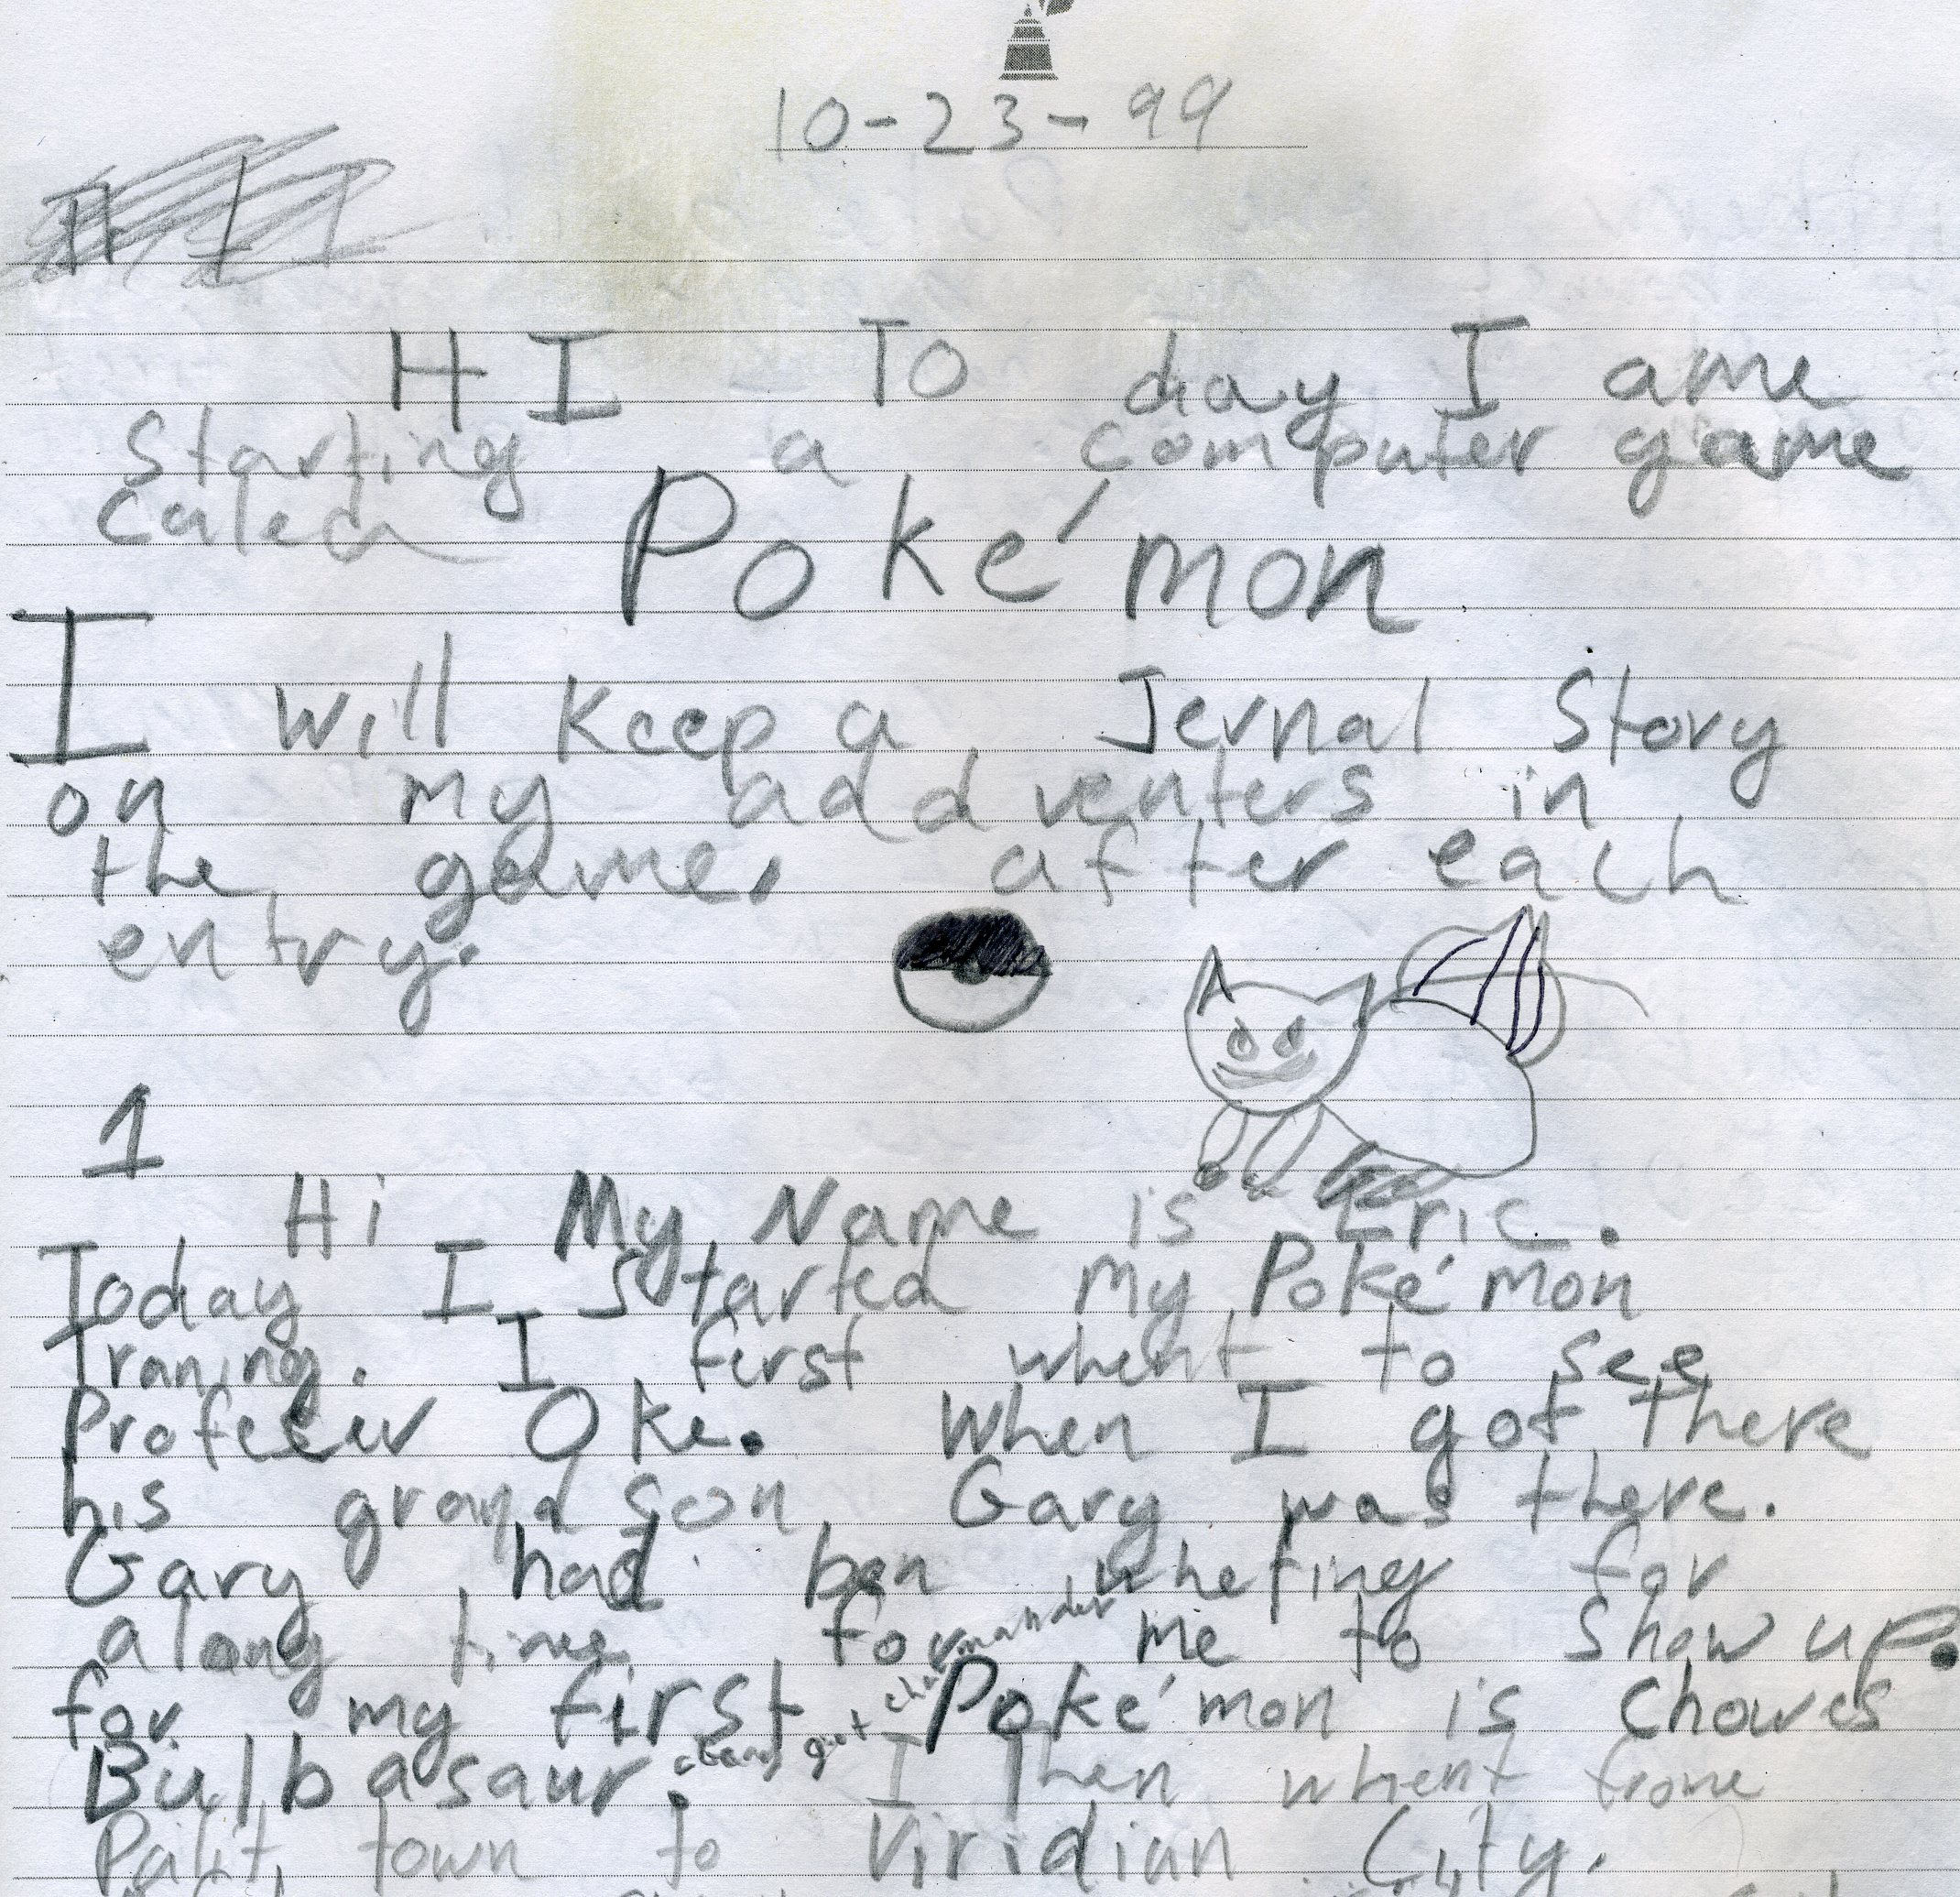 10-23-99
HI To day I ame
Starting a computer game
Caled Poké'mon
I will Keep a Jernal Story
on my addventers in
the game, after each
entry.
1
Hi My Name is Eric.
Today I Started my Poké'mon
Traning. I ferst whent to see
Profeser Oke. When I got there
his grand son Gary was there.
Gary had ben wheting for
along time for me to show up.
for my first Poké'mon is Chowes
Bulbasaur. got charmander I then whent frome
Palit town to Viridian City.